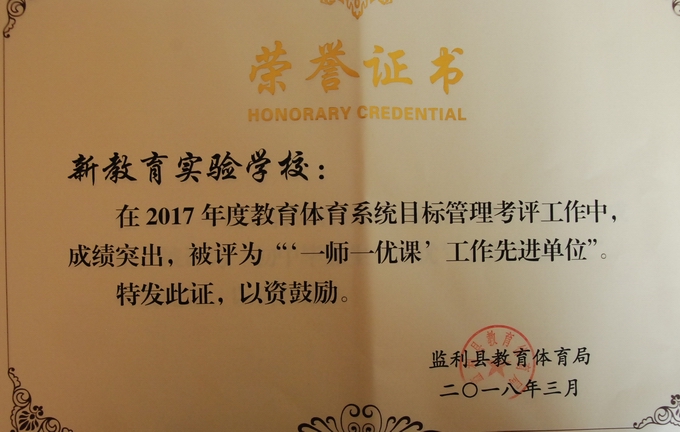 荣誉证书
HONORARY CREDENTIAL
新教育实验学校：
在 2017 年度教育体育系统目标管理考评工作中，
成绩突出，被评为“‘一师一优课’工作先进单位”。
特发此证，以资鼓励。
监利县教育体育局
二〇一八年三月